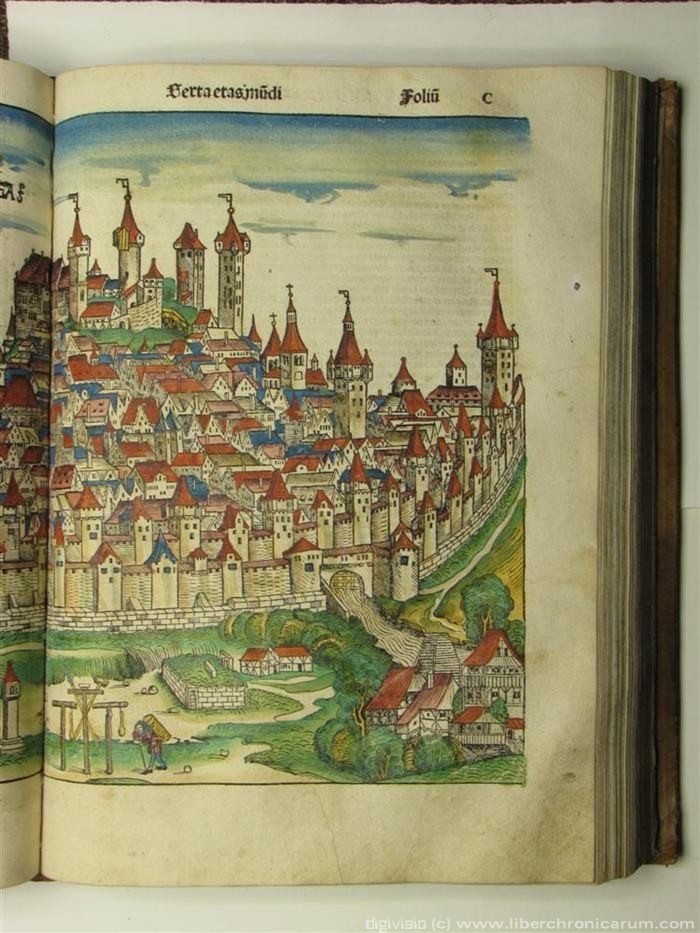 Sexta etas mũdi
Foliũ C
digivisio (c) www.liberchronicarum.com